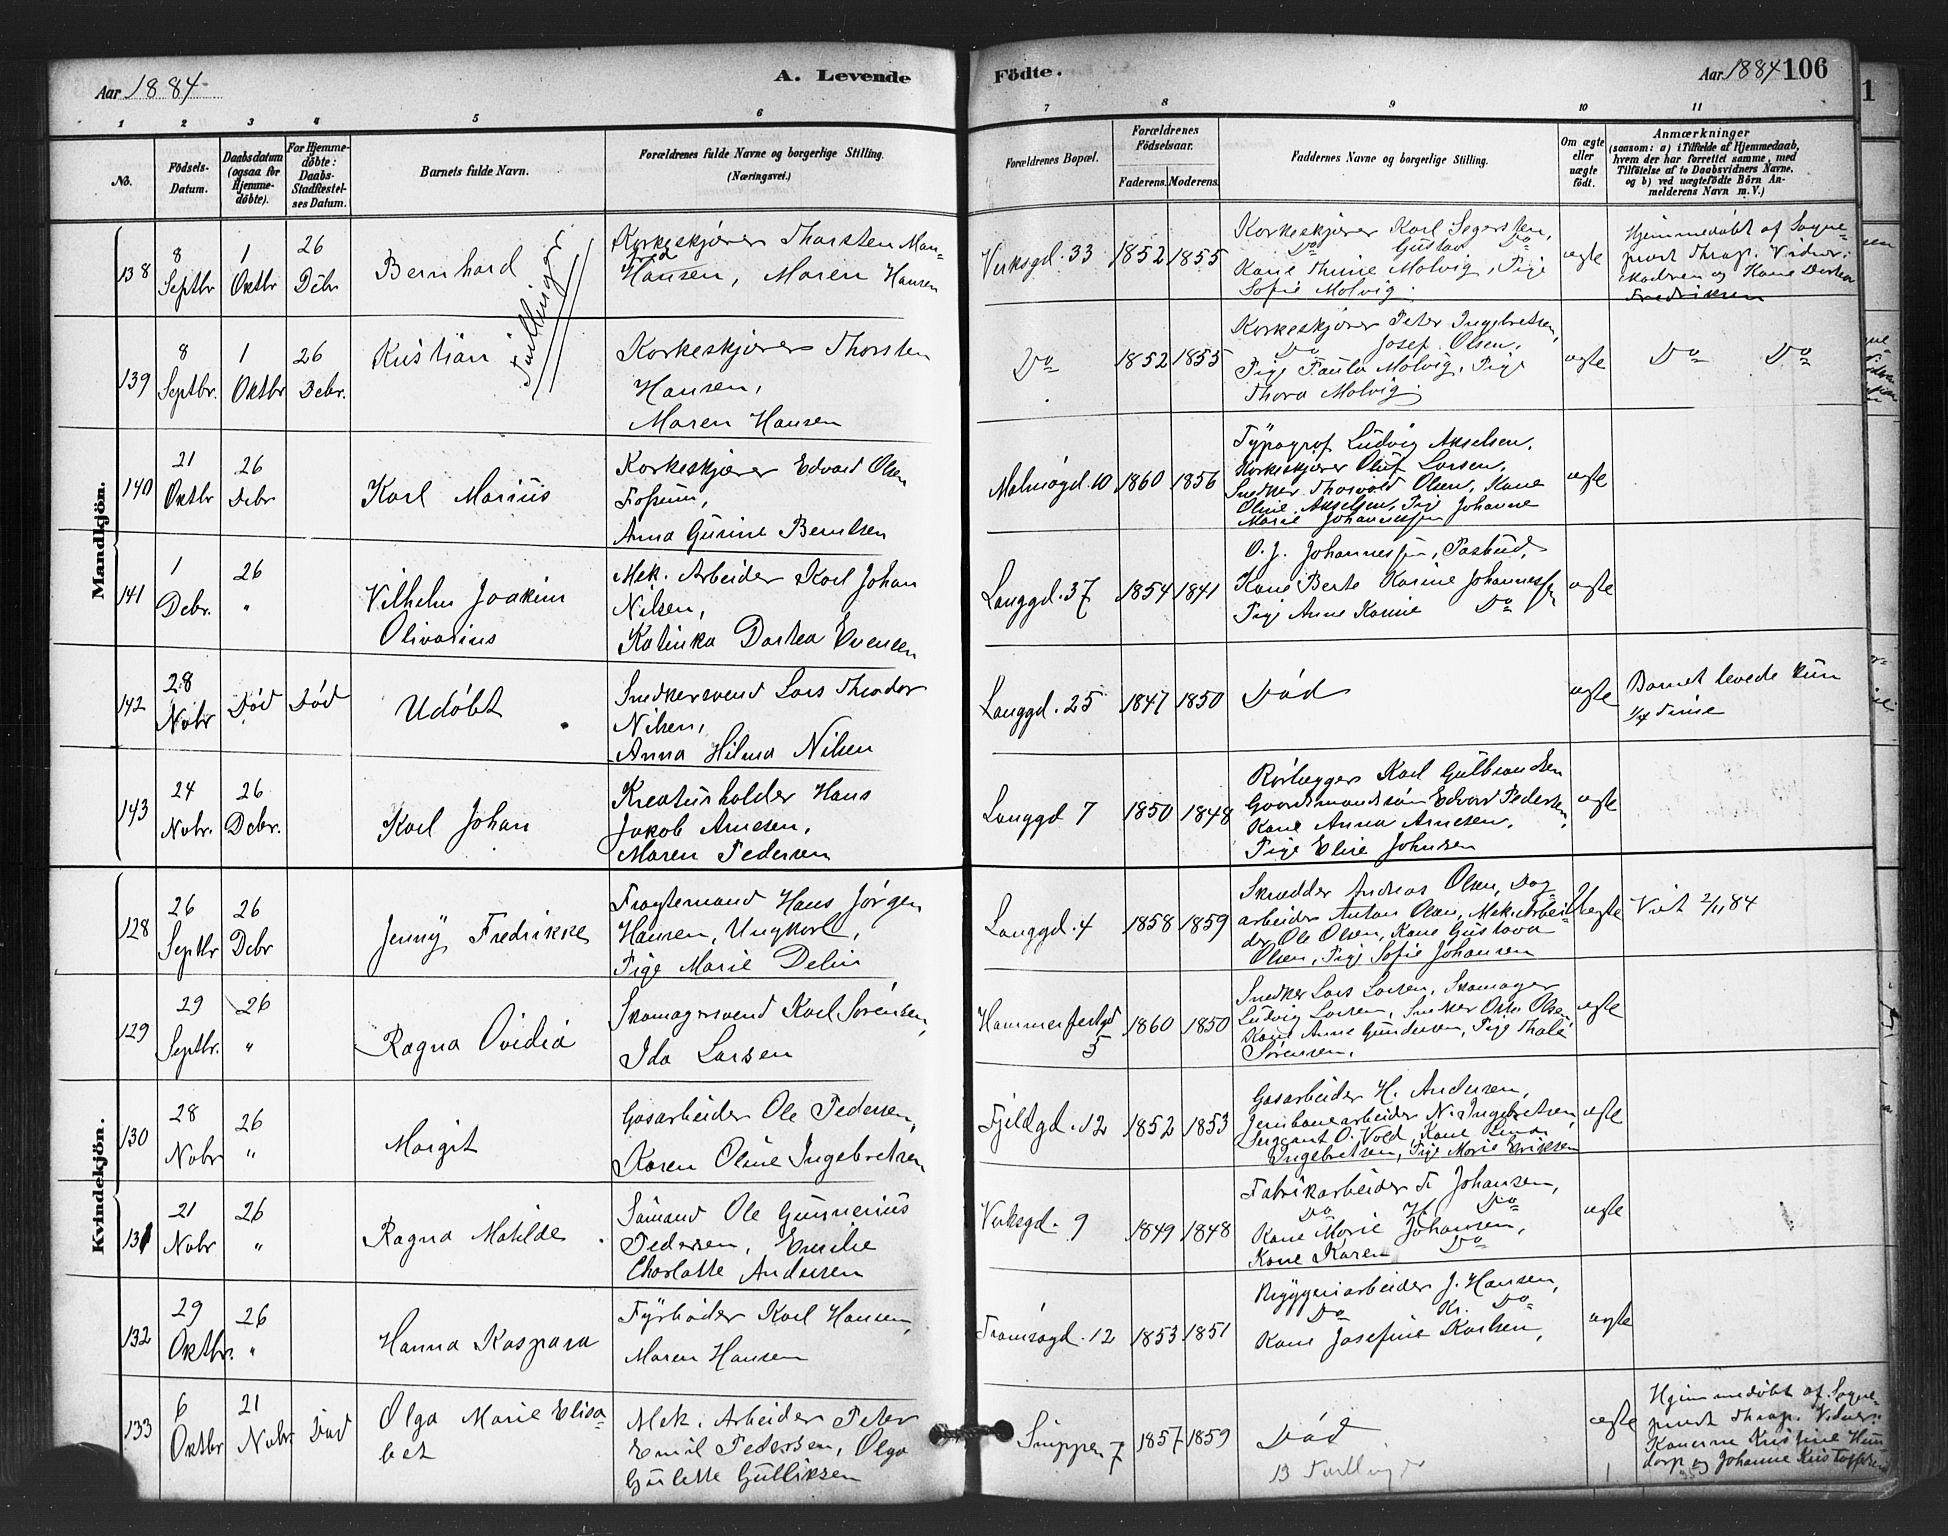 Aar 1884
A. Levende
Födte.
Aar 1884 106
1 2 3 4 5 6 7 8 9 10 11
No.
Födsels-
Datum.
Daabsdatum
(ogsaa för
Hjemme-
döbte).
For Hjemme-
döbte:
Daabs-
Stadfæstel-
ses Datum.
Barnets fulde Navn.
Forældrenes fulde Navne og borgerlige Stilling.
(Næringsvei.)
Forældrenes Bopæl.
Forældrenes
Födselsaar.
Faderens. Moderens.
Faddernes Navne og borgerlige Stilling.
Om ægte
eller
uægte
født.
Anmærkninger
(saasom: a) i Tilfælde af Hjemmedaab,
hvem der har forrettet samme, med
Tilföielse af to Daabsvidners Navne,
og b) ved uægtefödte Börn An-
melderens Navn m. V.)
Mandkjön.
138
8
Septbr
1
Oktbr
26
Debr
Bernhard
Tvillinger
Korkeskjærer Thorsten Man-
fred
Hansen, Maren Hansen
Verksgd. 33
1852 1855
Korkeskjærer Karl Segersten,
Do Gustav Do
Kone Thrine Molvig, Pige
Sofie Molvig.
ægte
Hjemmedøbt af Sogne-
prest Thrap. Vidner:
Madren og Kone Dorthea
Fredriksen
139
8
Septbr.
1
Oktbr
26
Debr.
Kristian
Korkeskjærer Thorsten
Hansen,
Maren Hansen
Do
1852 1855
Korkeskjærer Peter Ingebretsen,
Do Josef Olsen,
Pige Paula Molvig, Pige
Thora Molvig
ægte
Do Do
140
21
Oktbr
26
Debr
Karl Marius
Korkeskjærer Edvard Olsen
Fossum,
Anna Gurine Berntsen
Malmøgd. 10
1860 1856
Typograf Ludvig Akselsen,
Korkeskjærer Oluf Larsen,
Snedker Thorvald Olsen, Kone
Oline Akselsen, Pige Johanne
Marie Johannessen
ægte
141
1
Debr.
26
"
Vilhelm Joakim
Olivarius
Mek. Arbeider Karl Johan
Nilsen,
Katinka Dortea Evensen
Langgd. 37
1854 1841
O. J. Johannessen, Postbud,
Kone Berte Karine Johannessen
Pige Anne Karine Do
ægte
142
28
Nobr
Død Død
Udøbt
Snedkersvend Lars Theodor
Nilsen,
Anna Hilma Nilsen
Langgd. 25
1847 1850
Død
ægte
Barnet levede kun
1/4 Time
143
24
Nobr.
26
Debr.
Karl Johan
Kreaturholder Hans
Jakob Arnesen,
Maren Pedersen
Langgd 7
1850 1848
Rørlægger Karl Gulbrandsen
Gaardmandssøn Edvard Pedersen,
Kone Anna Arnesen,
Pige Elise Johnsen
ægte
Kvindekjön.
128
26
Septbr
26
Debr
Jenny Fredrikke
Fragtemand Hans Jørgen
Hansen, Ungkarl,
Pige Marie Delin
Langgd. 4
1858 1859
Skrædder Andreas Olsen, Dag-
arbeider Anton Olsen, Mek. Arbei-
der Ole Olsen, Kone Gustava
Olsen, Pige Sofie Johansen
Uægte
Vist 2/11 84
129
29
Septbr.
26
"
Ragna Ovidia
Skomagersvend Karl Sørensen,
Ida Larsen
Hammerfestgd
5
1860 1850
Snedker Lars Larsen, Skomager
Ludvig Larsen, Snedker Otto Olsen
Kone Anne Gundersen, Pige Thale
Sørensen.
ægte
130
28
Nobr
26
"
Margit
Gasarbeider Ole Pedersen,
Karen Oline Ingebretsen
Fjeldgd. 12
1852 1853
Gasarbeider H. Andersen,
Jernbanearbeider N. Ingebretsen,
Sergeant O. Vold, Kone Lina
Ingebretsen, Pige Marie Eriksen
ægte
131
21
Nobr
26
"
Ragna Matilde
Sømand Ole Gunnerius
Pedersen, Emilie
Charlotte Andersen
Verksgd. 9
1849 1848
Fabrikarbeider F. Johansen,
Do H. Do
Kone Marie Johansen,
Kone Karen Do
ægte
132
29
Oktbr.
26
"
Hanna Kaspara
Fyrbøder Karl Hansen,
Maren Hansen
Tromsøgd. 12
1853 1851
Bryggeriarbeider J. Hansen,
Do Kr. Do
Kone Josefine Karlsen,
ægte
133
6
Oktbr
21
Nobr.
Død
Olga Marie Elisa-
bet
Mek. Arbeider Peter
Emil Pedersen, Olga
Gulette Gulliksen
Snippen 7
1857 1859
Død
ægte
Hjemmedøbt af Sogne-
prest Thrap. Vidner:
Konerne Kristine Hun-
dorp og Johanne Kristoffersen